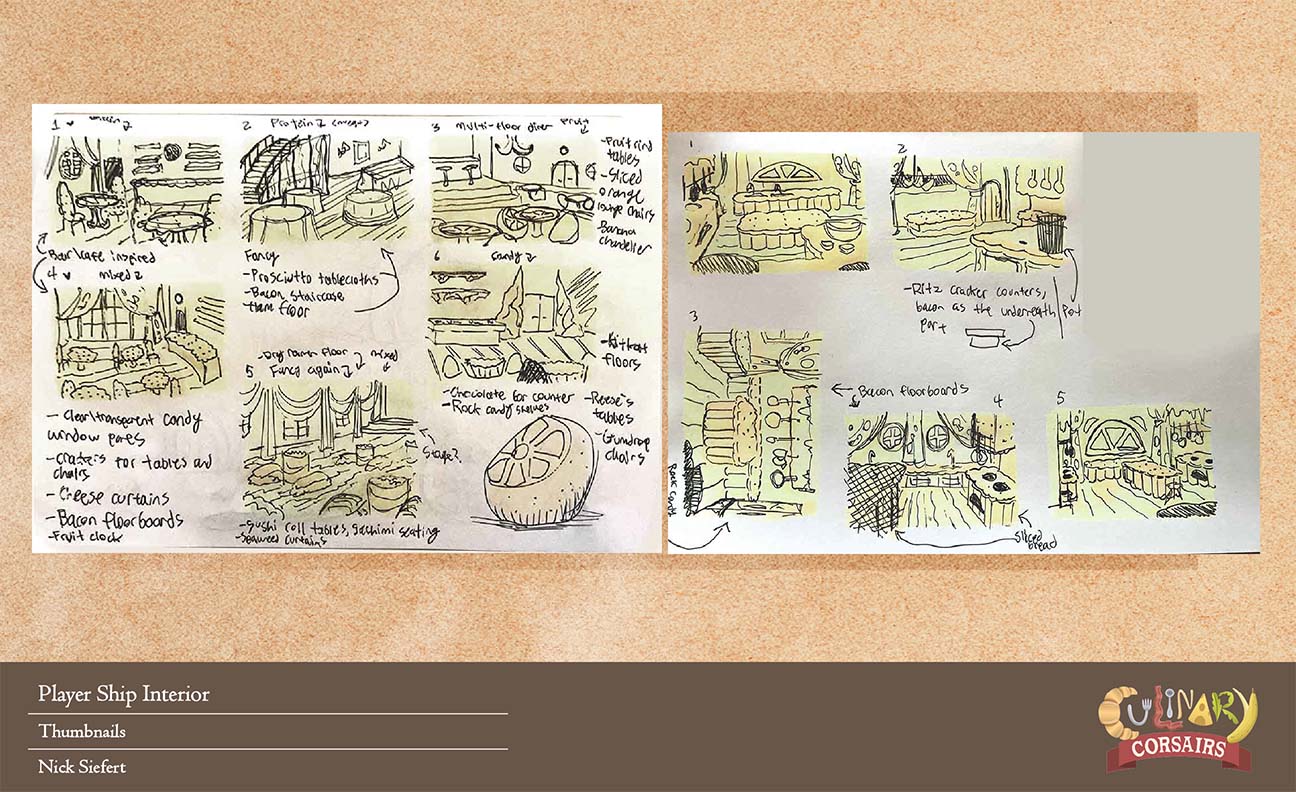 1
2 Protein
3 Multi-floor diner fruit
-Fruit rind
tables
-Sliced
orange
lounge chairs
-Banana
chandelier
-Bar/cafe inspired
4 mixed
Fancy
-Prosciutto tablecloths
-Bacon staircase
-Ham floor
6 Candy
-Kitkat
floors
-Clear/transparent candy
window panes
-Crackers for tables and
chairs
-Cheese curtains
-Bacon floorboards
-Fruit clock
floor mixed
5 Fancy again
Stage?
-Sushi roll tables, Sashimi seating
-Seaweed curtains
-Chocolate for counter
-Rock candy shelves
-Reese's
tables
-Gumdrop
chairs
1
2
-Ritz cracker counters,
bacon as the underneath
part
Pot
3
Bacon floorboards
4
5
Sliced
bread
Player Ship Interior
Thumbnails
Nick Siefert
CULINARY
CORSAIRS